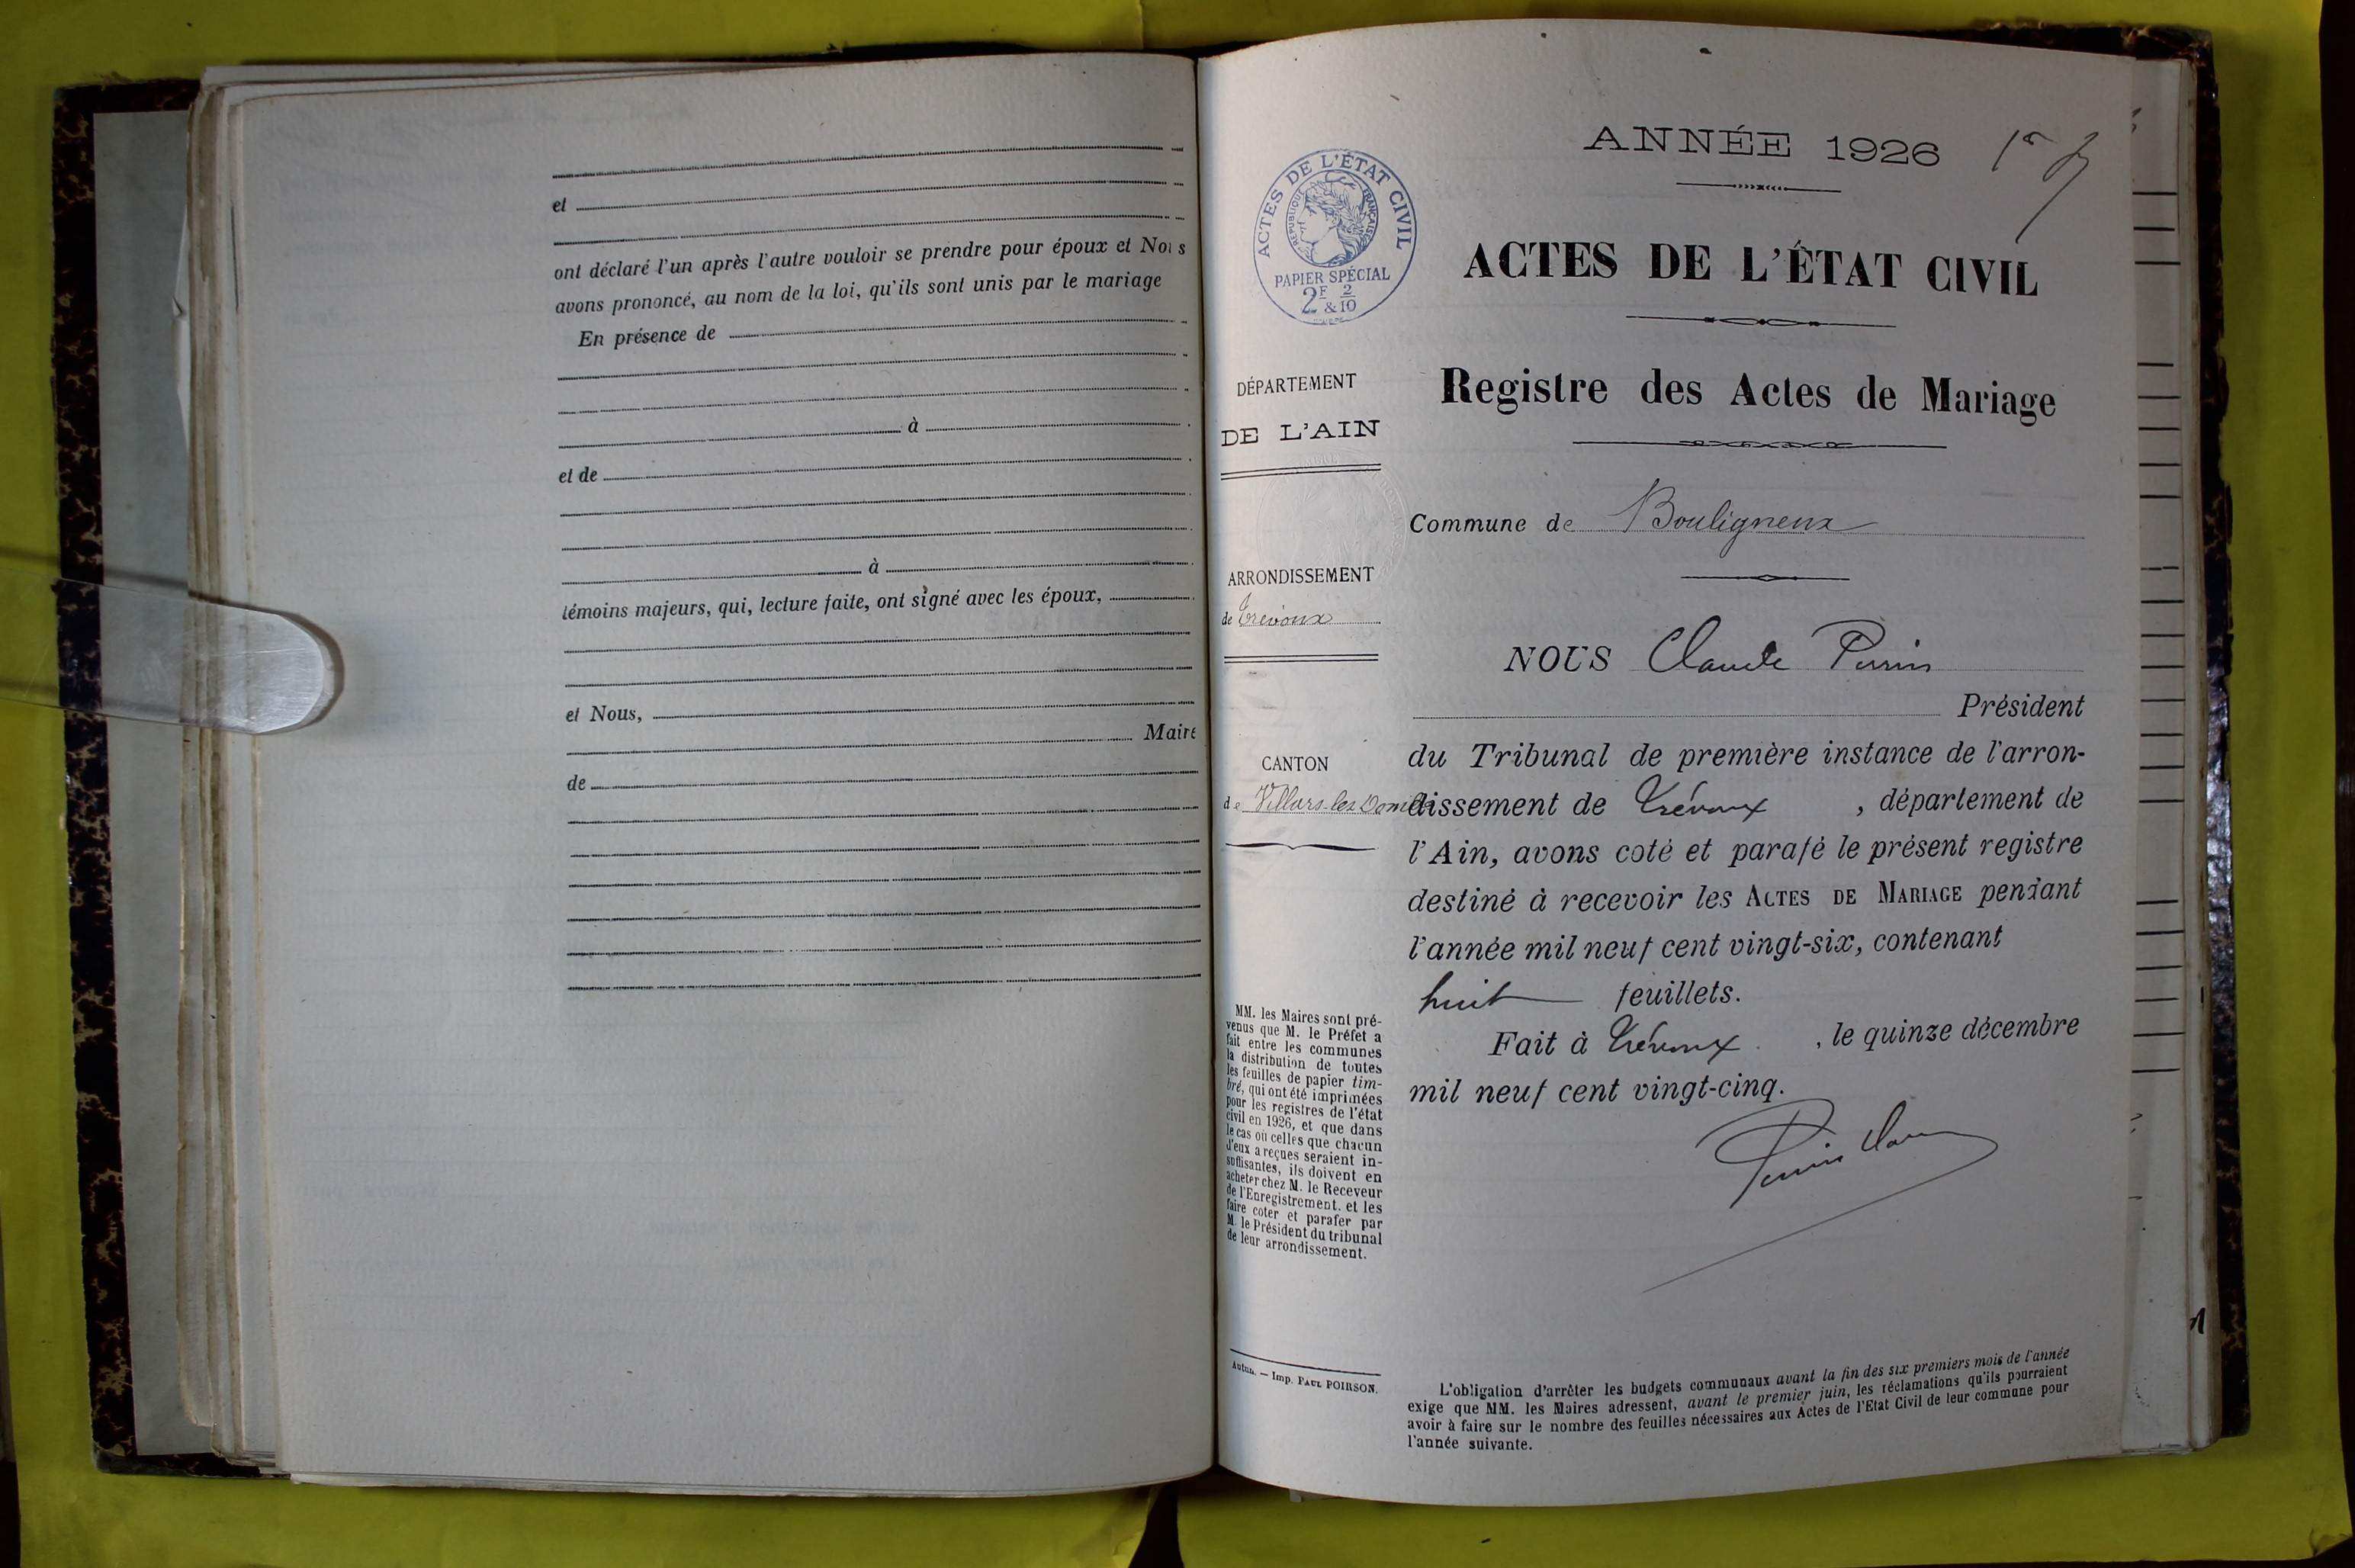 et
ont déclaré l'un après l'autre vouloir se prendre pour époux et Nous
avons prononcé, au nom de la loi, qu'ils sont unis par le mariage
En présence de
à
et de
à
témoins majeurs, qui, lecture faite, ont signé avec les époux,
et Nous,
Maire
de
ANNÉE 1926
ACTES DE L'ÉTAT CIVIL
RÉPUBLIQUE FRANÇAISE
PAPIER SPÉCIAL
2F & 2/10
ACTES DE L'ÉTAT CIVIL
Registre des Actes de Mariage
DÉPARTEMENT
DE L'AIN
ARRONDISSEMENT
de Trévoux
CANTON
de Villars-les-Dombes
MM. les Maires sont pré-
venus que M. le Préfet a
fait entre les communes
la distribution de toutes
les feuilles de papier tim-
bré, qui ont été imprimées
pour les registres de l'état
civil en 1926, et que dans
le cas où celles que chacun
d'eux a reçues seraient in-
suffisantes, ils doivent en
acheter chez M. le Receveur
de l'Enregistrement. et les
faire coter et parafer par
M. le Président du tribunal
de leur arrondissement.
Autun. — Imp. PAUL POIRSON.
Commune de Bouligneux
NOUS Claude Perrin
Président
du Tribunal de première instance de l'arron-
dissement de Trévoux , département de
l'Ain, avons coté et parafé le présent registre
destiné à recevoir les ACTES DE MARIAGE pendant
l'année mil neuf cent vingt-six, contenant
huit feuillets.
Fait à Trévoux , le quinze décembre
mil neuf cent vingt-cinq.
L'obligation d'arrêter les budgets communaux avant la fin des six premiers mois de l'année
exige que MM. les Maires adressent, avant le premier juin, les réclamations qu'ils pourraient
avoir à faire sur le nombre des feuilles nécessaires aux Actes de l'Etat Civil de leur commune pour
l'année suivante.